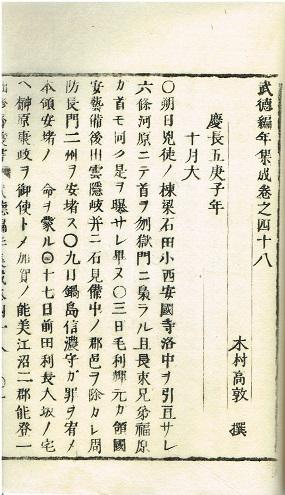 武德編年集成卷之四十八
木村高敦 撰
慶長五庚子年
十月大
〇朔日兇徒ノ棟梁石田小西安國寺洛中ヲ引亘サレ
六條河原ニテ首ヲ刎獄門ニ梟ラル且長束兄弟福原
カ首モ同ク是ヲ曝サレ畢ヌ〇三日毛利輝元カ領國
安藝備後出雲隱岐并ニ石見備中ノ郡邑ヲ除カレ周
防長門二州ヲ安堵ス〇九日鍋島信濃守カ罪ヲ宥メ
本領安堵ノ命ヲ蒙ル〇十七日前田利長大坂ノ宅
ヘ榊原康政ヲ御使トメ加賀ノ能美江沼二郡能登一